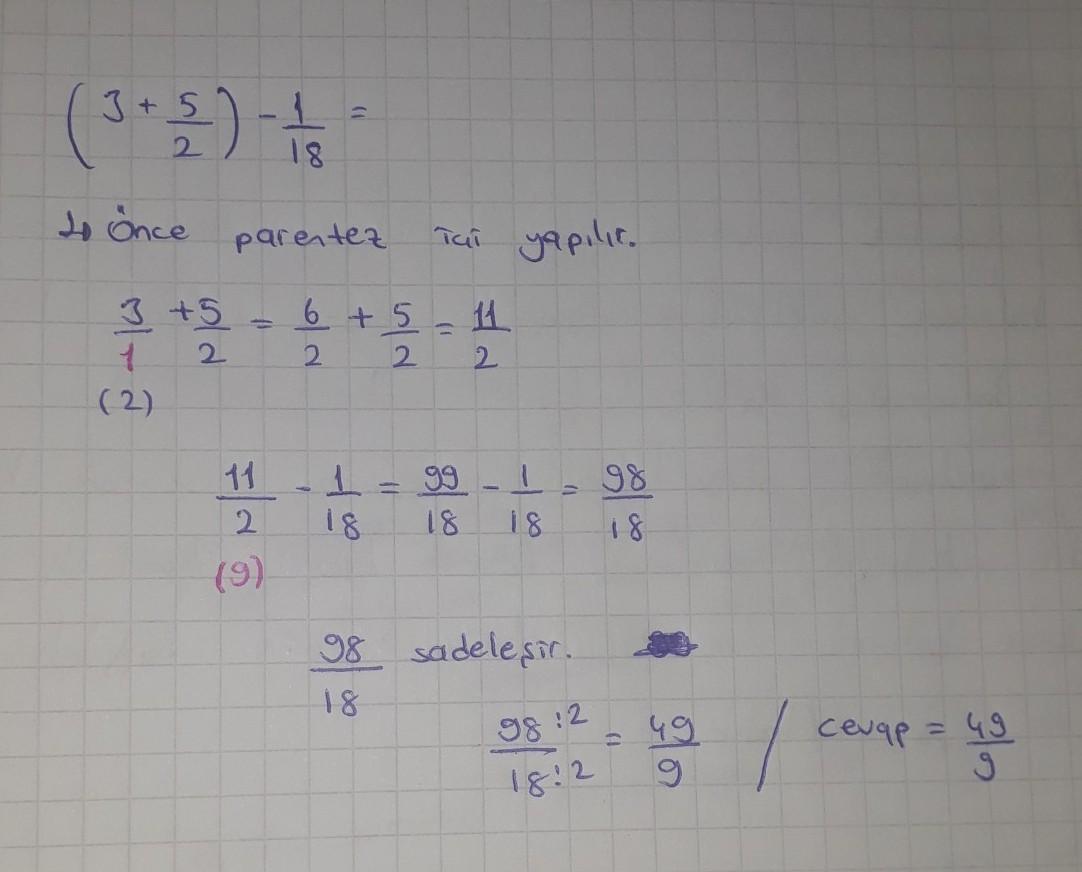 (3 + 5/2) - 1/18 =
↳ Önce parentez içi yapılır.
3/1 + 5/2 = 6/2 + 5/2 = 11/2
(2)
11/2 - 1/18 = 99/18 - 1/18 = 98/18
(9)
98/18 sadeleşir.
98:2/18:2 = 49/9 / cevap = 49/9